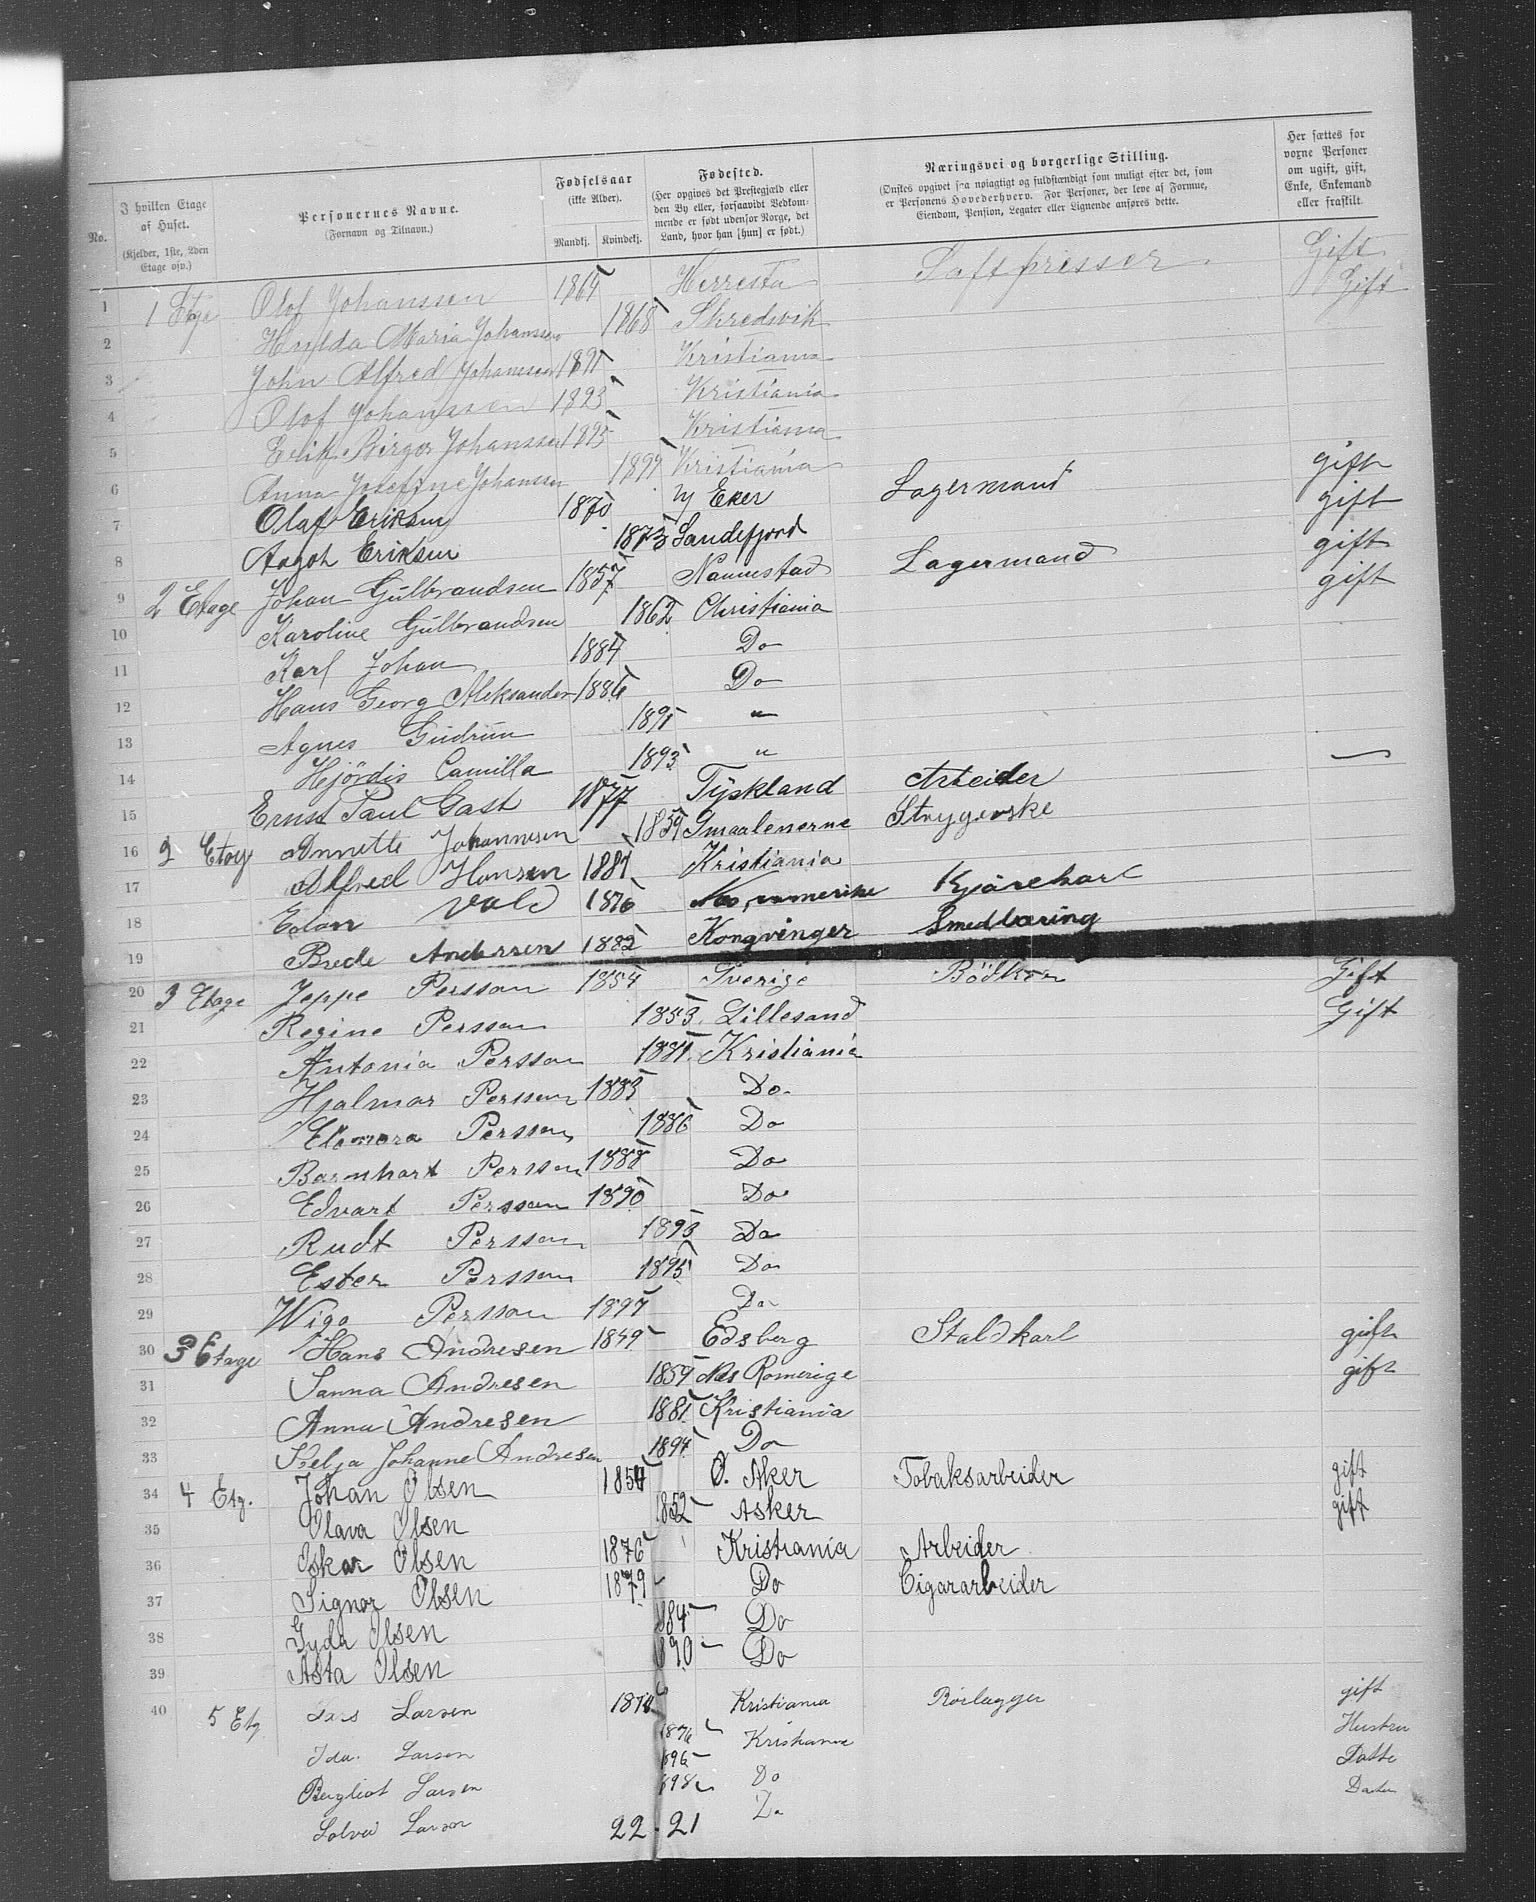 No.
I hvilken Etage af Huset.
(Kjelder, 1ste, 2den Etage osv.)
Personernes Navne.
(Fornavn og Tilnavn.)
Fødselsaar
(ikke Alder).
Mandkj. Kvindekj.
Fødested.
(Her opgives det Prestegjæld eller den By eller, forsaavidt Vedkommende er født udenfor Norge, det Land, hvor han [hun] er født.)
Næringsvei og borgerlige Stilling.
(Ønskes opgivet saa nøiagtigt og fuldstændigt som muligt efter det, som er Personens Hovederhverv. For Personer, der leve af Formue, Eiendom, Pension, Legater eller Lignende anføres dette.
Her sættes for voxne Personer om ugift, gift, Enke, Enkemand eller fraskilt.
1 1 Etage Olof Johanssen 1864 Herresta Saftpresser Gift
2 Hulda Maria Johanssen 1868 Skredsvik Gift
3 John Alfred Johanssen 1891 Kristiania
4 Olof Johanssen 1893 Kristiania
5 Erik Birger Johanssen 1895 Kristiania
6 Anna Josefine Johanssen 1899 Kristiania
7 Olaf Eriksen 1870 Eker Lagermand gift
8 Aagot Eriksen 1873 Sandefjord gift
9 2 Etage Johan Gulbrandsen 1857 Nannestad Lagermand gift
10 Karoline Gulbrandsen 1862 Christiania gift
11 Karl Johan 1884 Do
12 Hans Georg Aleksander 1886 Do
13 Agnes Gudrun 1891 "
14 Hjördis Camilla 1893 "
15 Ernst Paul Gast 1877 Tÿskland Arbeider —
16 2 Etage Annette Johannesen 1859 Smaalenerne Strygerske
17 Alfred Hansen 1881 Kristiania
18 Edon Vold 1876 Kjørekarl
19 Brede Andersen 1882 Kongvinger Smedlæring
20 3 Etage Jeppe Persson 1854 Sverige Bödker Gift
21 Regine Persson 1853 Lillesand Gift
22 Antonia Persson 1881 Kristiania
23 Hjalmar Persson 1883 Do.
24 Elenora Persson 1886 Do
25 Barnhart Persson 1888 Do
26 Edvart Persson 1890 Do
27 Rudt Persson 1893 Do
28 Ester Persson 1895 Do
29 Wigo Persson 1897 Do
30 3 Etage Hans Andresen 1849 Edsberg Staldkarl gift
31 Sanna Andresen 1859 Nes Romerige gift
32 Anna Andresen 1881 Kristiania
33 Helja Johanne Andresen 1894 Do
34 4 Etg. Johan Olsen 1854 Ø. Aker Tobaksarbeider gift
35 Olava Olsen 1852 Asker gift
36 Oskar Olsen 1876 Kristiania Arbeider
37 Signar Olsen 1879 Do Cigararbeider
38 Gyda Olsen 884 Do
39 Asta Olsen 890 Do
40 5 Etg Lars Larsen 1874 Kristiania Rørlægger gift
Ida Larsen 1876 Kristiania Hustru
Bergliot Larsen 896 Do Datte
Solvei Larsen 898 Do Datter
22 - 21